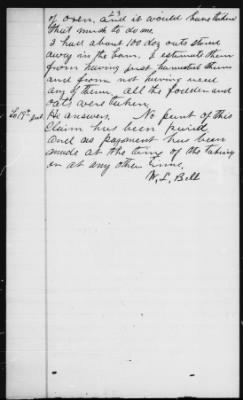 23
of oxen, and it would have taken
that much to do me
I had about 100 doz oats stored
away in the barn. I estimate them
from having just harvested them
and from not having used
any of them. all the fodder and
oats were taken,
To 19th Int. He answers. No part of this
Claim has been paid,
and no payment has been
made at the time of the taking
or at any other time,
W. L. Bell